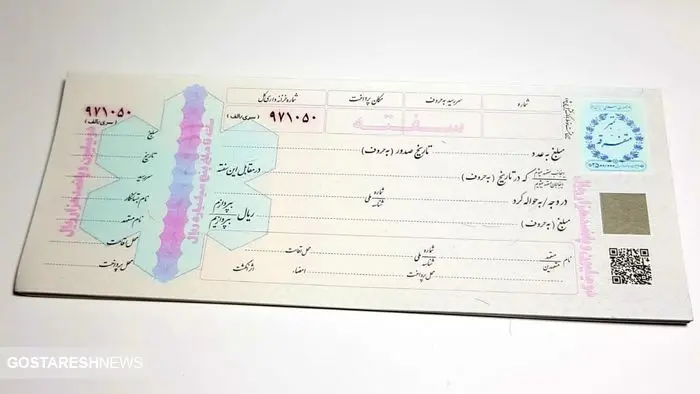 شماره
سررسید به حروف
مکان پرداخت
شماره خزانه داری کل
۹۷۱۰۵۰
(سری/الف)
سفته
مبلغ به عدد
تاریخ صدور (به حروف)
در مقابل این سفته
که در تاریخ (به حروف)
در وجه / به حواله کرد
شماره
ملی
شناسه
بپردازم
ریال
بپردازیم
مبلغ (به حروف)
نام
متعهد
متعهدین
شماره
ملی
شناسه
محل اقامت
محل پرداخت
امضاء
اثر انگشت
۹۷۱۰۵۰
(سری/الف)
مبلغ
تاریخ
سررسید
نام متعهد
محل اقامت
محل پرداخت
سفته
GOSTARESHNEWS